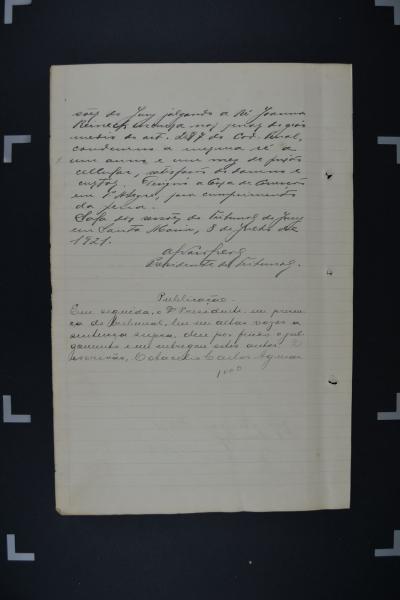 sões do Jury julgando a Ré Joanna
incursa nas penas do gráo
medio do art. 287 do Cod. Penal,
condemno a mesma ré a
um anno e um mez de prisão
cellular, satisfação do damno e
custas. a Casa de Correcção
em P. Alegre, para cumprimento
da pena.
Sala das sessões do Tribunal do Jury
em Santa Maria, 8 de Julho de
1921.
Presidente do Tribunal.
Publicação.
Em seguida, o Dr Presidente, em presen
ça do Tribunal, leu em altas vozes a
sentença supra, deu por findo o jul
gamento e me entregou estes autos. O
escrivão, Carlos Aguiar